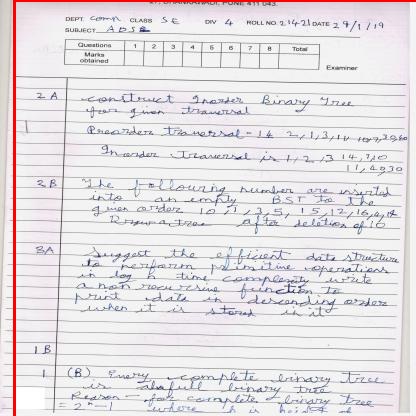 DHANKAWADI, PUNE 411 043.
DEPT. Comp CLASS SE DIV 4 ROLL NO. 21421 DATE 29/1/19
SUBJECT ADS
Questions 1 2 3 4 5 6 7 8 Total
Marks obtained
Examiner
2A construct Inorder Binary Tree
for given traversal
Preorder traversal - 14 2, 1, 3, 11
Inorder traversal is 1, 2, 3 14, 7, 10
11, 40 30
2B The following number are inserted
into an empty BST to the
given order 10, 1, 3, 5, 15, 12, 16
Draw a tree after deletion of 10
3A Suggest the efficient data structure
to perform primitive operations
in log n time complexity write
a non recursive function to
print data in descending order
when it is stored in it
1B
1 (B) Every complete binary tree
is also full binary tree
Reason - for complete binary tree
= 2^h - 1 where h is height of